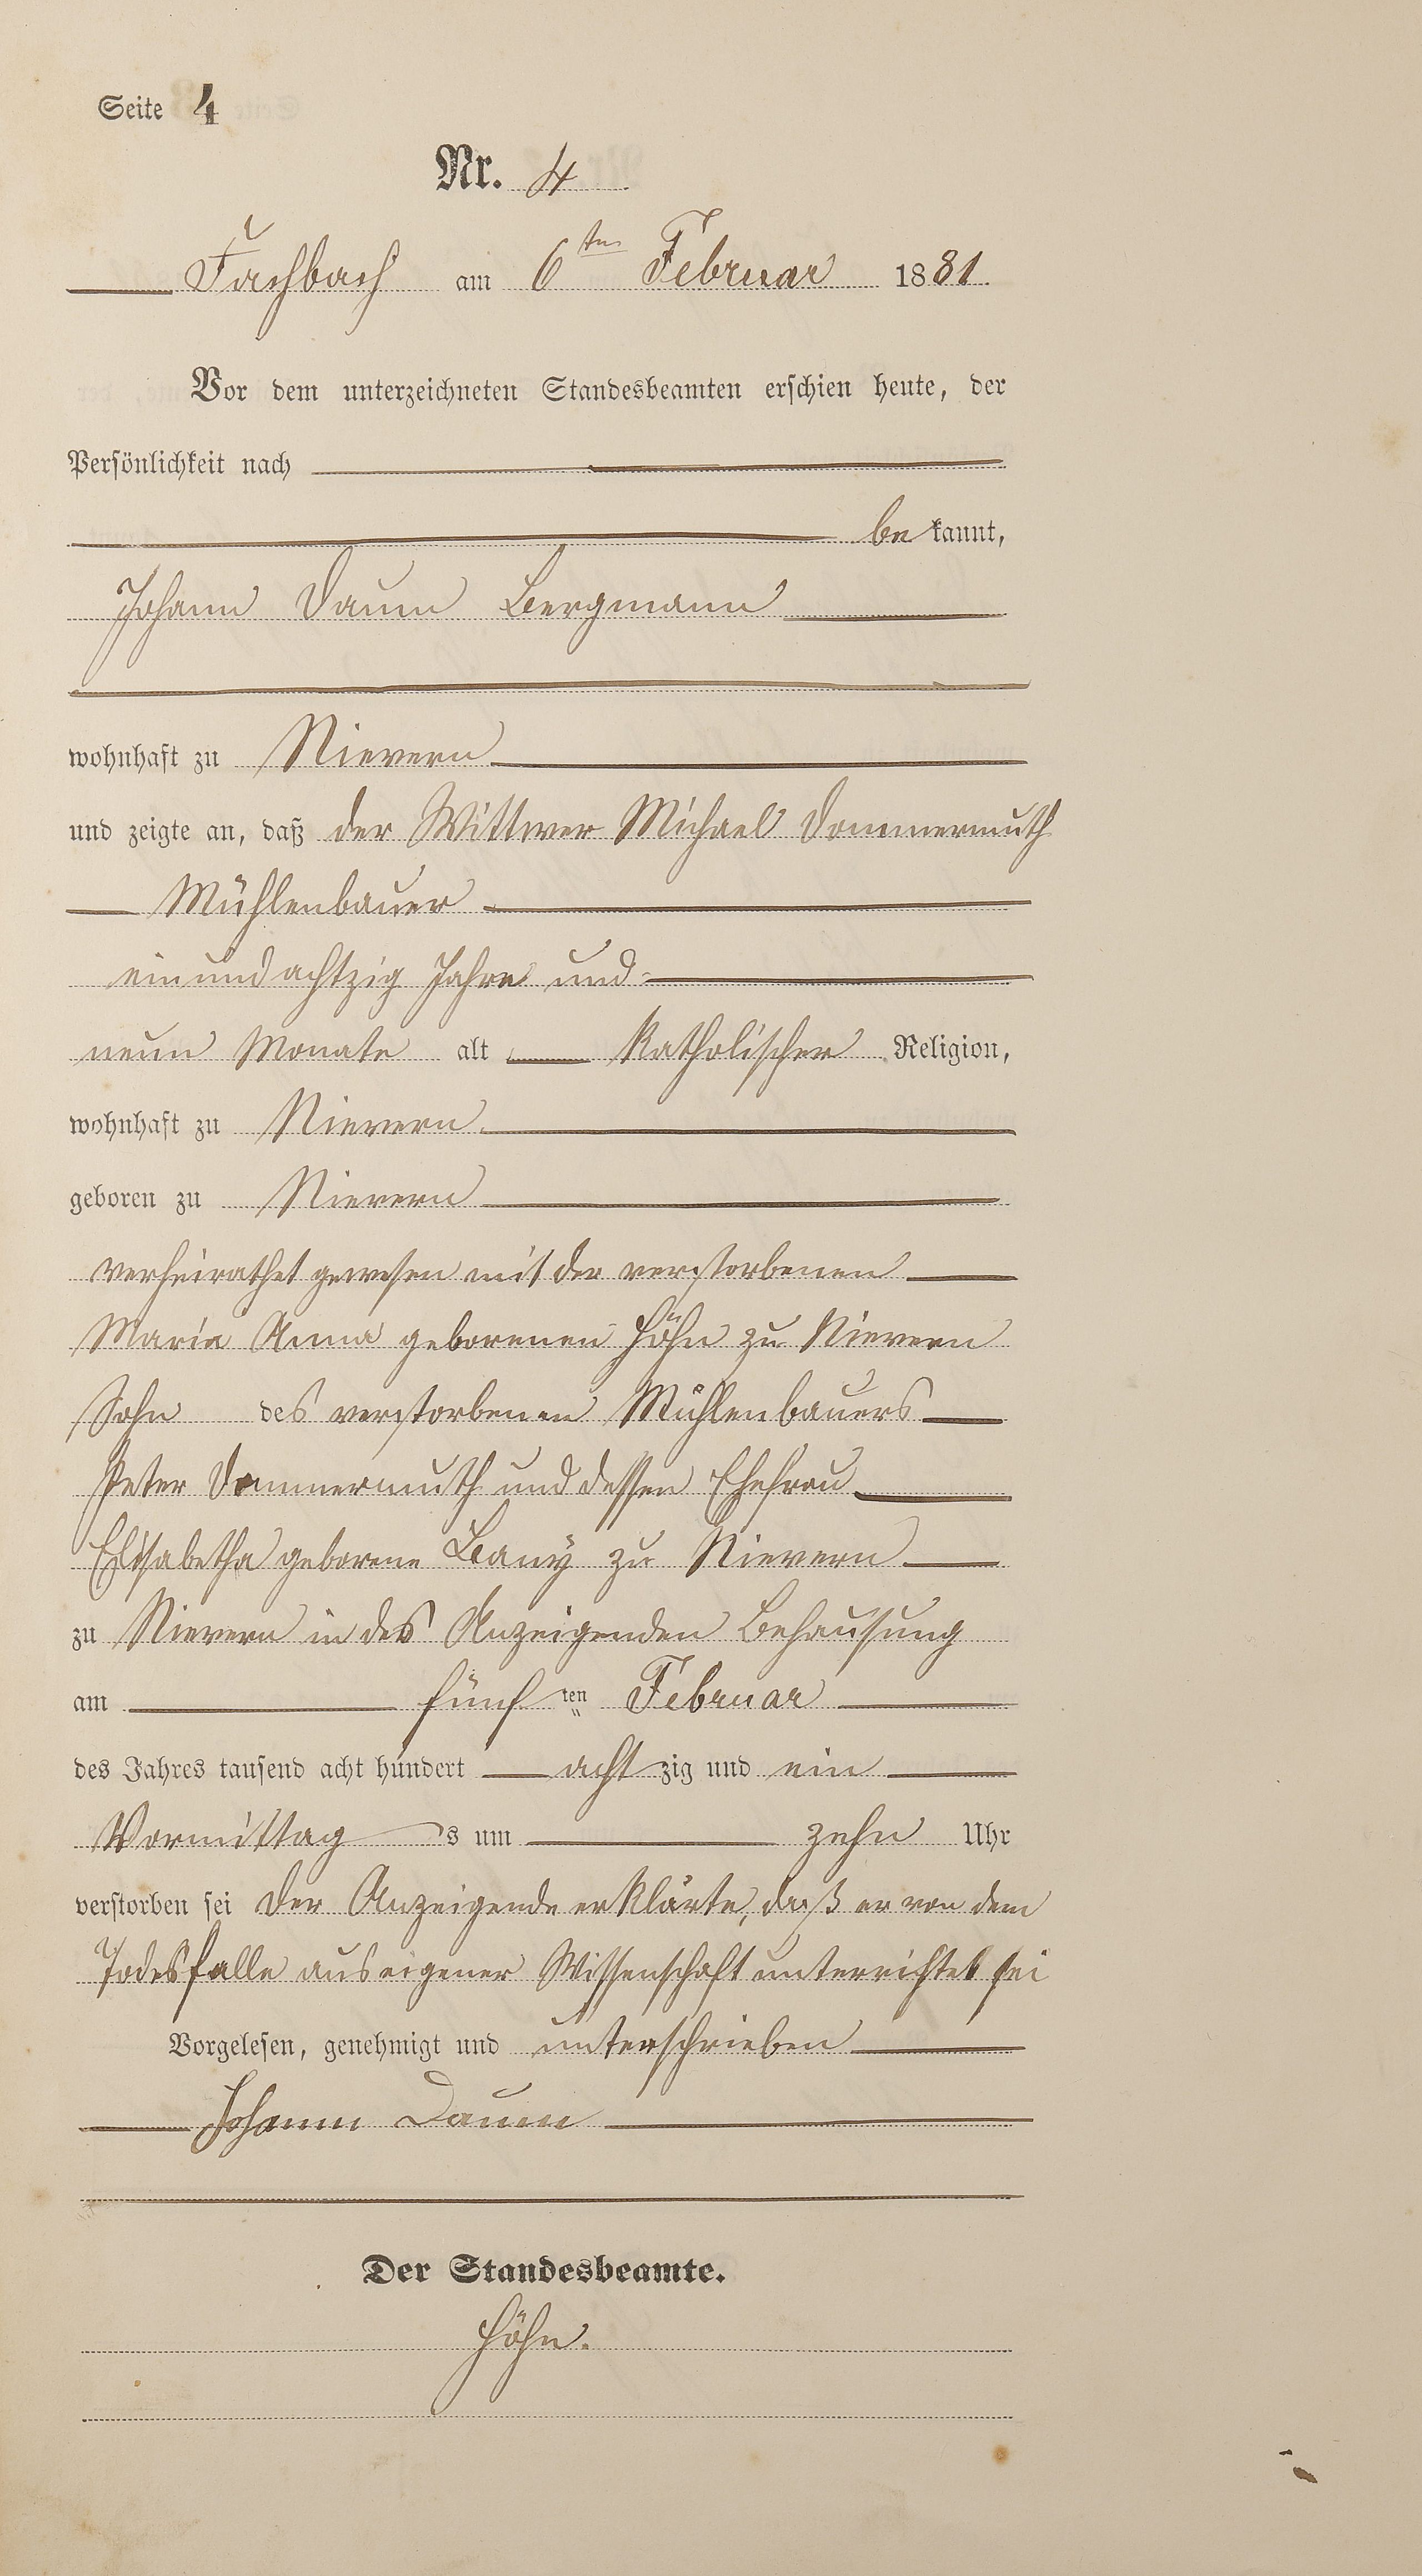 Seite 4
Nr. 4
Fachbach am 6ten Februar 1881.
Vor dem unterzeichneten Standesbeamten erschien heute, der
Persönlichkeit nach
bekannt,
Johann Daum Bergmann
wohnhaft zu Nievern
und zeigte an, daß der Wittwer Michael Dommermuth
Mühlenbauer
einundachtzig Jahre und
neun Monate alt katholischer Religion,
wohnhaft zu Nievern
geboren zu Nievern
verheirathet gewesen mit der verstorbenen
Maria Anna geborenen Höhn zu Nievern
Sohn des verstorbenen Mühlenbauers
Peter Dommermuth und dessen Ehefrau
Elisabetha geborene Bany zu Nievern
zu Nievern in des Anzeigenden Behausung
am fünften Februar
des Jahres tausend acht hundert achtzig und ein
Vormittags um zehn Uhr
verstorben sei Der Anzeigende erklärte, daß er von dem
Todesfalle aus eigener Wissenschaft unterrichtet sei
Vorgelesen, genehmigt und unterschrieben
Johann Daum
Der Standesbeamte.
Höhn.